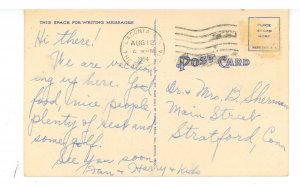 THIS SPACE FOR WRITING MESSAGES
Hi there!
We are vacation-
ing up here. Good
food, nice people,
plenty of rest and
some golf.
See you soon,
Fran & Harry & Kids
LACONIA
AUG 12
1954
PLACE
STAMP
HERE
POST CARD
Dr. & Mrs. B. Sherman
Main Street
Stratford, Conn